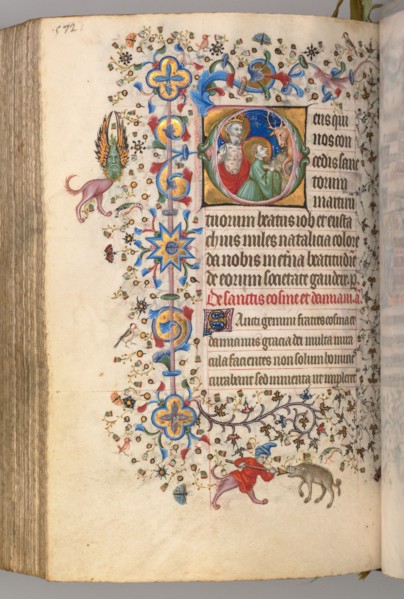 572
Deus qui
nos con
cedis sanc
torum
martiru
tuorum beatus iob et eusta
chius miles natalicia colore
da nobis in etna beatitudie
de eorum societate gaudere. p.
De sanctis cosme et damiani. a.
Sancti gemini fratres cosma et
damianus gracia dei multa mira
cula facientes non solum homines
curabant sed iumenta